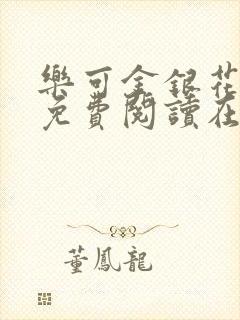 樂可金銀花
免費閱讀在
董鳳龍